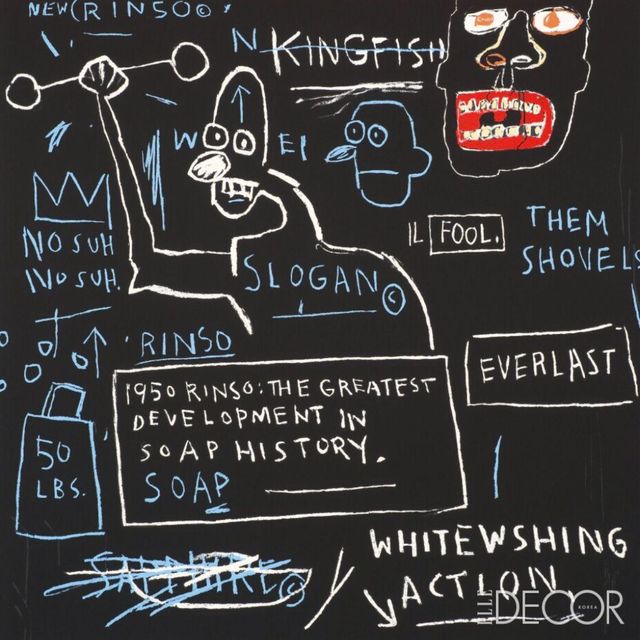 NEW RINSO©
N KINGFISH
W EI
IL FOOL.
THEM
SHOVELS
NO SUH
NO SUH.
SLOGAN©
RINSO
EVERLAST
1950 RINSO: THE GREATEST
DEVELOPMENT IN
SOAP HISTORY.
SOAP
50
LBS.
SAPPHIRE©
WHITEWSHING
ACTION.
ELLE DECOR
KOREA